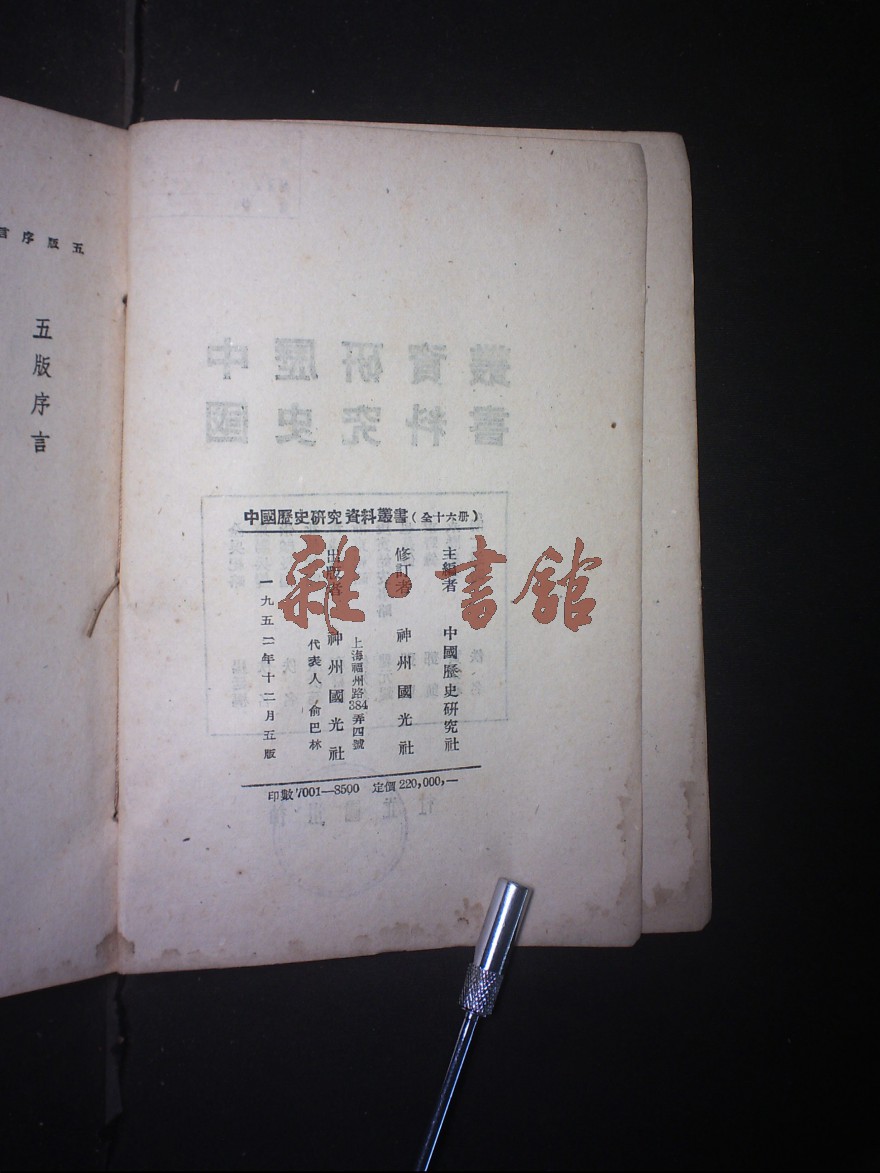 中國歷史研究資料叢書(全十六册)
主編者 中國歷史研究社
修訂者 神州國光社
上海福州路384弄四號
出版者 神州國光社
代表人 俞巴林
一九五二年十二月五版
印數7001—8500 定價220,000,—
五版序言
五版序言
雜·書館
中國歷史研究資料叢書